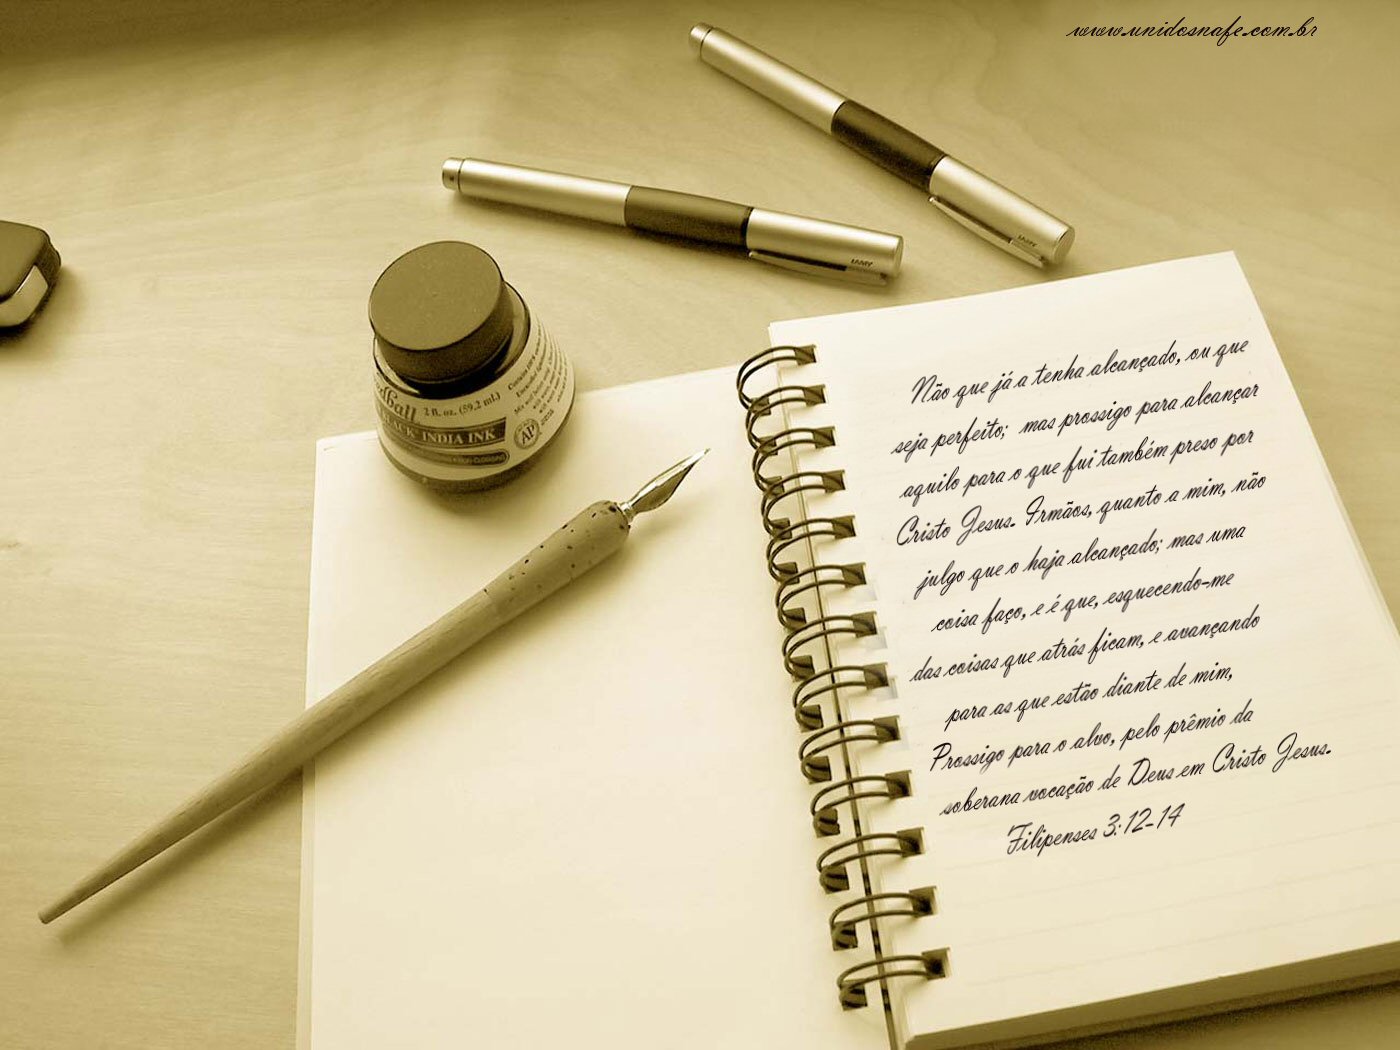 www.unidosnafe.com.br
LAMY
LAMY
2 fl. oz. (59.2 ml.)
BLACK INDIA INK
AP
Não que já a tenha alcançado, ou que
seja perfeito; mas prossigo para alcançar
aquilo para o que fui também preso por
Cristo Jesus. Irmãos, quanto a mim, não
julgo que o haja alcançado; mas uma
coisa faço, e é que, esquecendo-me
das coisas que atrás ficam, e avançando
para as que estão diante de mim,
Prossigo para o alvo, pelo prêmio da
soberana vocação de Deus em Cristo Jesus.
Filipenses 3:12-14